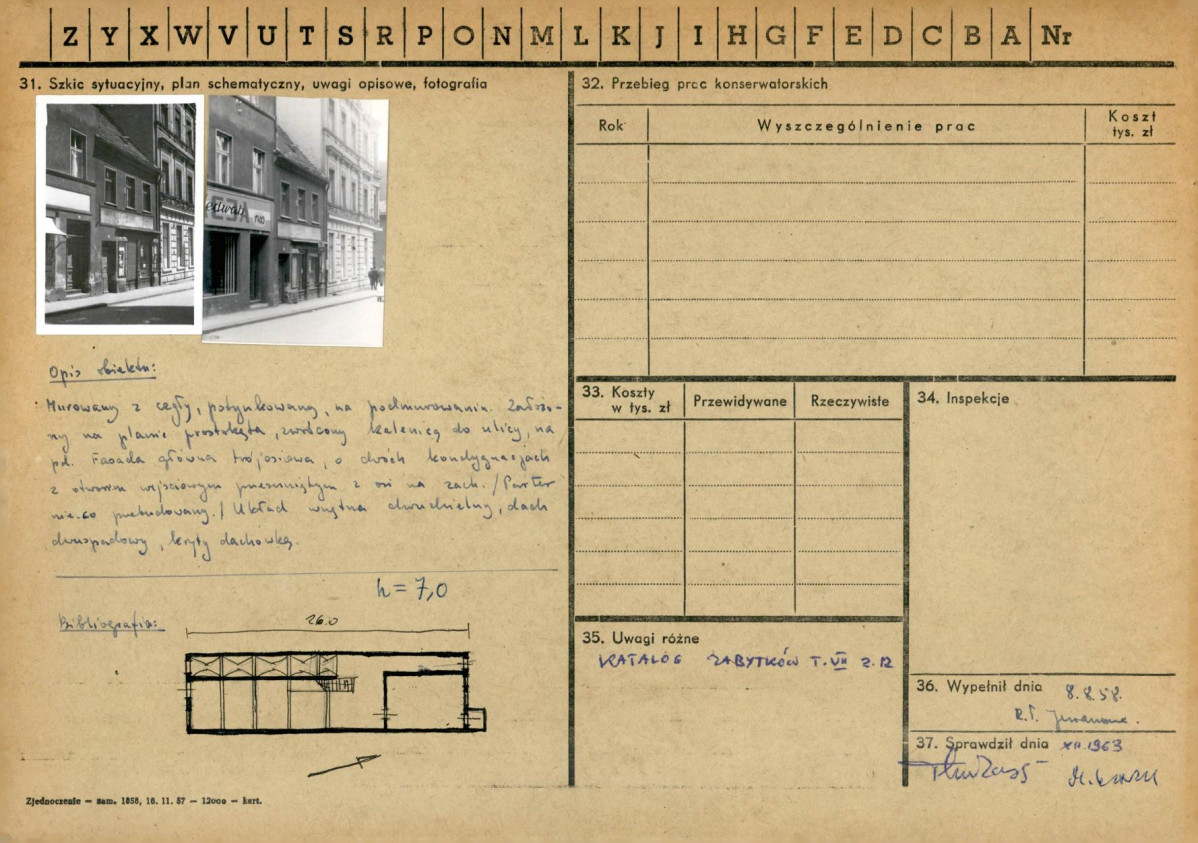 Z Y X W V U T S R P O N M L K J I H G F E D C B A Nr
31. Szkic sytuacyjny, plan schematyczny, uwagi opisowe, fotografia
edwab
nas
Opis obiektu:
Murowany z cegły, potynkowany, na podmurowaniu. Założo-
ny na planie prostokąta, zwrócony kalenicą do ulicy, na
pd. Fasada główna trójosiowa, o dwóch kondygnacjach
z otworem wejściowym przesuniętym z osi na zach. /Parter
nieco przebudowany./ Układ wnętrza dwudzielny, dach
dwuspadowy, kryty dachówką.
h = 7,0
Bibliografia:
26.0
Zjednoczenie — zam. 1858, 16. 11. 57 — 12000 — kart.
32. Przebieg prac konserwatorskich
Rok
Wyszczególnienie prac
Koszt
tys. zł
33. Koszty
w tys. zł
Przewidywane
Rzeczywiste
34. Inspekcje
35. Uwagi różne
KATALOG ZABYTKÓW T. VII Z. 12
36. Wypełnił dnia 8.8.58.
37. Sprawdził dnia XII.1963